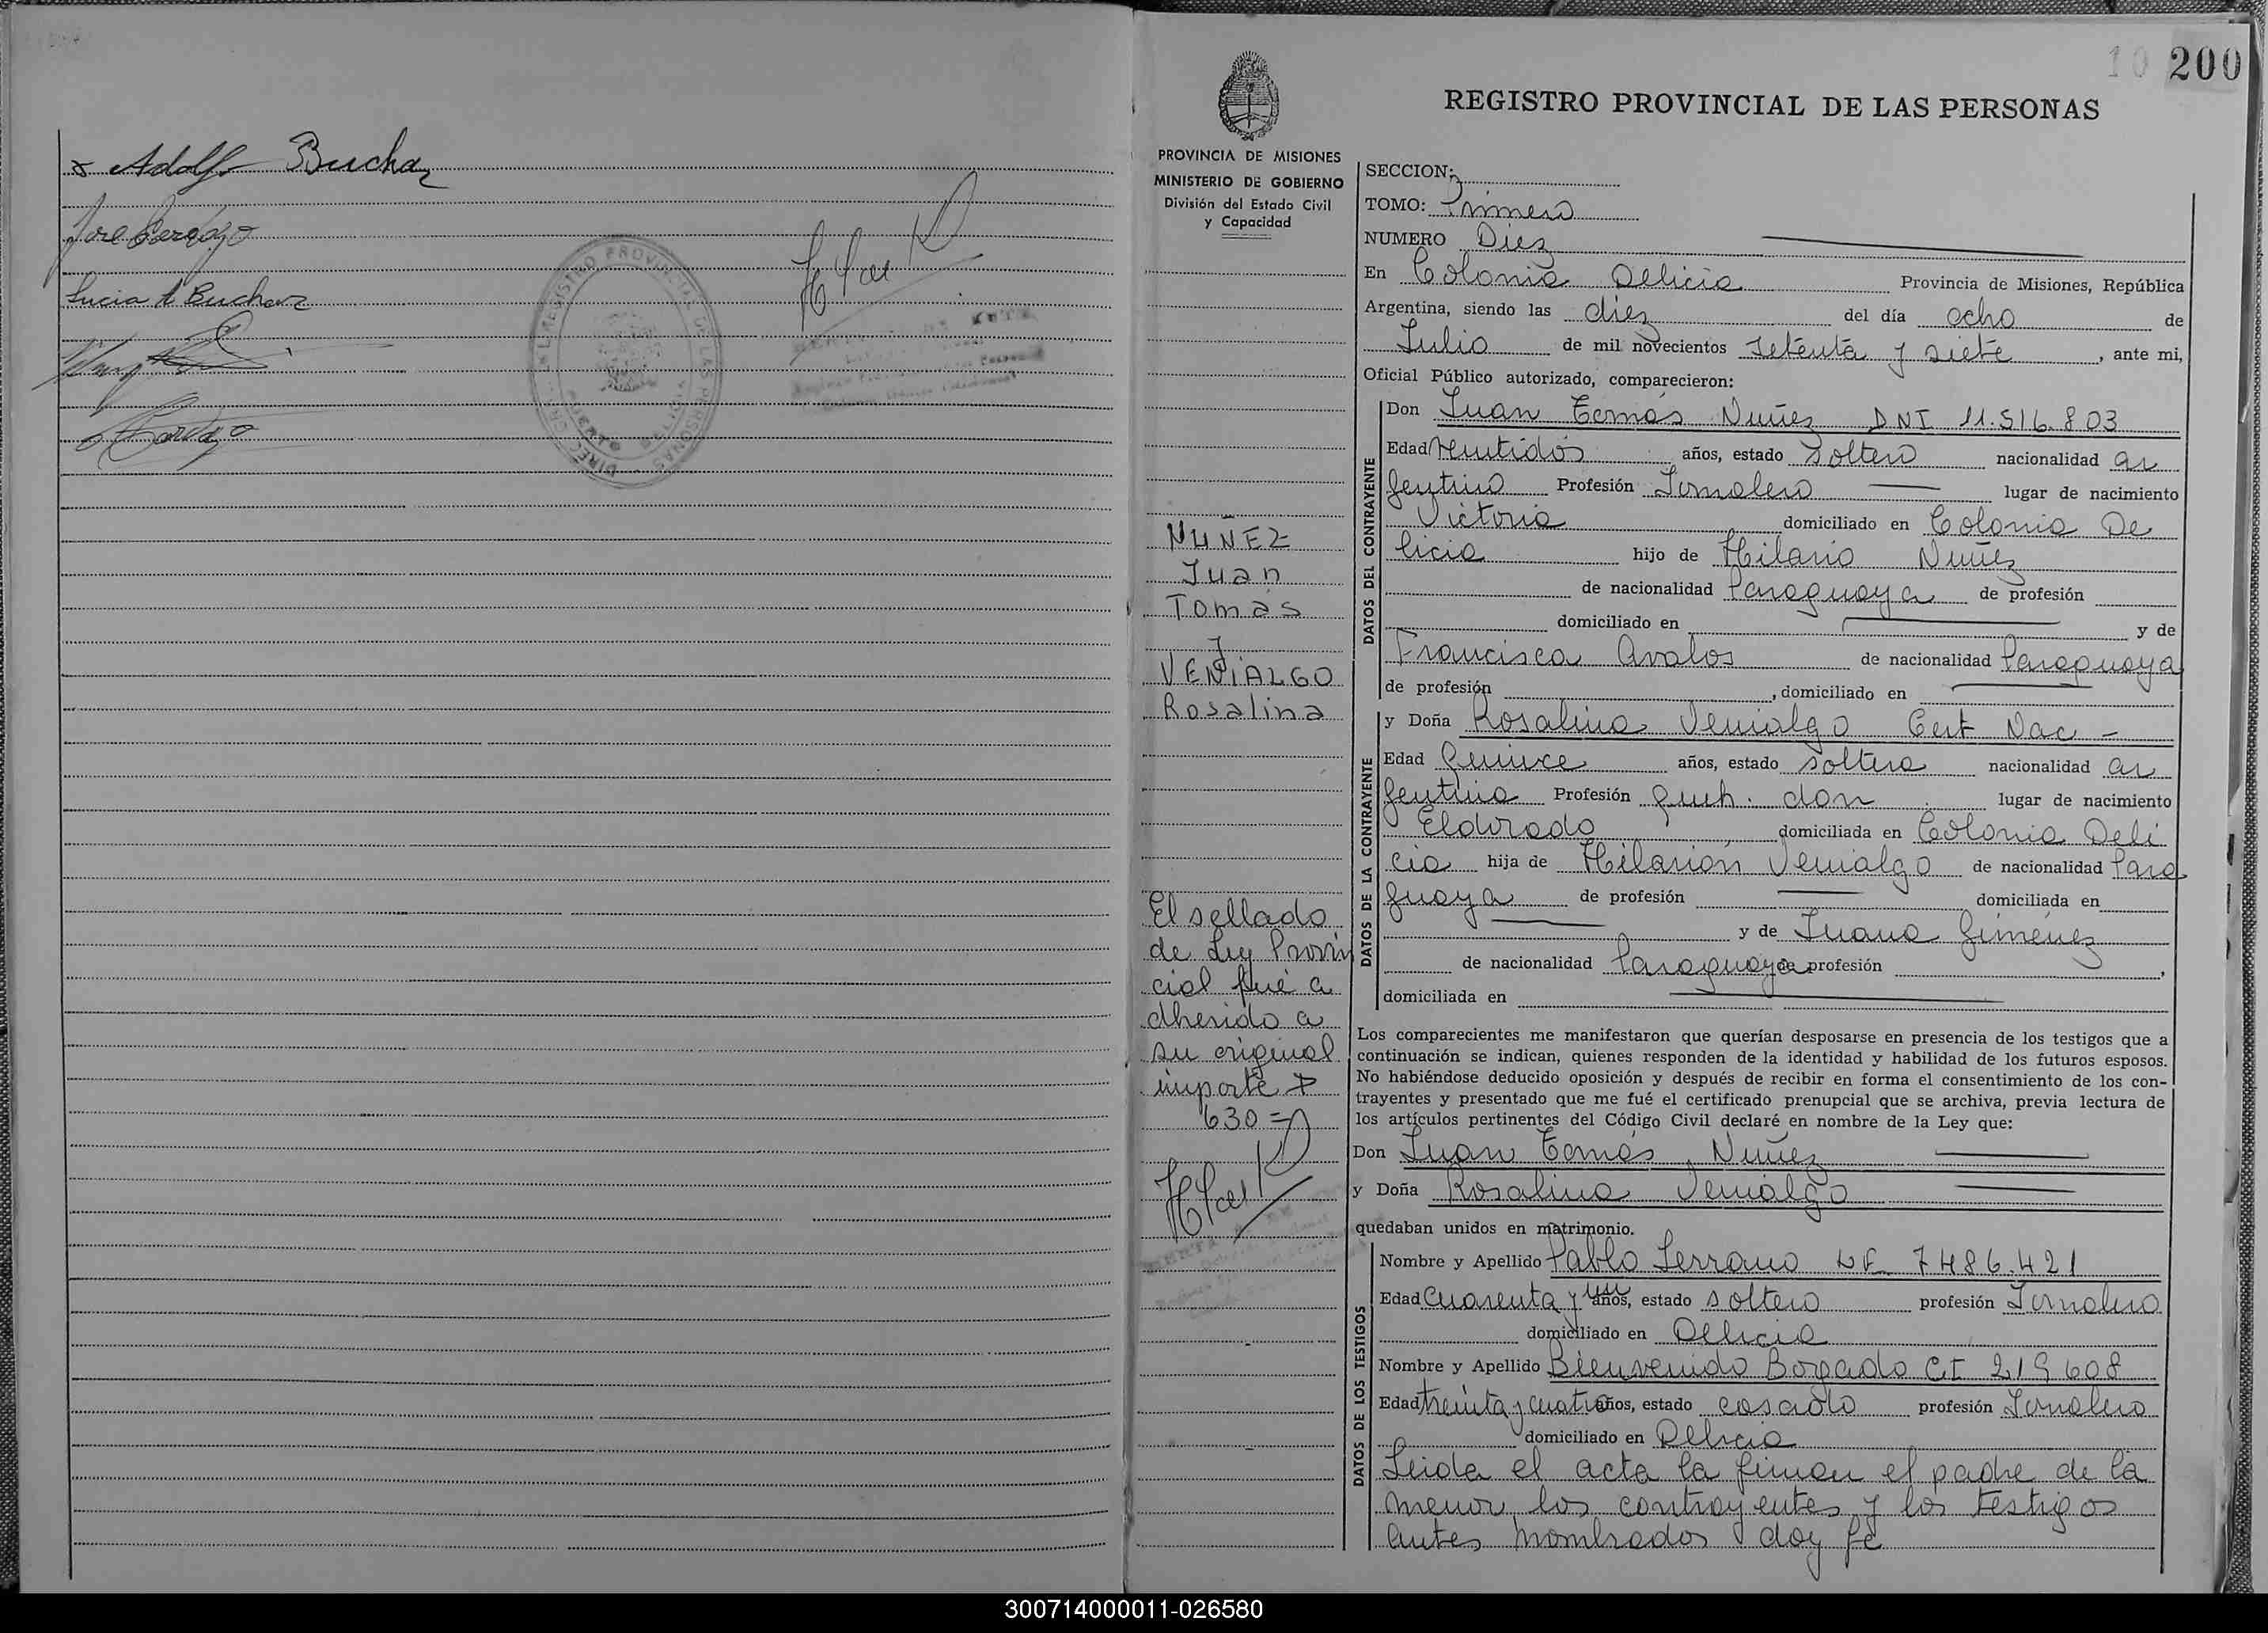 Adolfo Buchaz
Jose Cardozo
Lucia A Buchaz
Cardozo
10 200
REGISTRO PROVINCIAL DE LAS PERSONAS
PROVINCIA DE MISIONES
MINISTERIO DE GOBIERNO
División del Estado Civil
y Capacidad
NUÑEZ
Juan
Tomás
y
VENIALGO
Rosalina
El sellado
de Ley Provin
cial fué a
dherido a
su original
importe $
630=
SECCION:
TOMO: Primero
NUMERO Diez
En Colonia Delicia Provincia de Misiones, República
Argentina, siendo las diez del día ocho de
Julio de mil novecientos setenta y siete, ante mi,
Oficial Público autorizado, comparecieron:
DATOS DEL CONTRAYENTE
Don Juan Tomás Nuñez DNI 11.516.803
Edad veintidos años, estado soltero nacionalidad ar
gentino Profesión Jornalero lugar de nacimiento
Victoria domiciliado en Colonia De
licia hijo de Hilario Nuñez
de nacionalidad Paraguaya de profesión
domiciliado en y de
Francisca Avalos de nacionalidad Paraguaya
de profesión , domiciliado en
DATOS DE LA CONTRAYENTE
y Doña Rosalina Venialgo Cert Nac -
Edad Quince años, estado soltera nacionalidad ar
gentina Profesión queh. dom lugar de nacimiento
Eldorado domiciliada en Colonia Deli
cia hija de Hilarión Venialgo de nacionalidad Para
guaya de profesión domiciliada en
y de Juana Giménez
de nacionalidad Paraguaya de profesión ,
domiciliada en
Los comparecientes me manifestaron que querían desposarse en presencia de los testigos que a
continuación se indican, quienes responden de la identidad y habilidad de los futuros esposos.
No habiéndose deducido oposición y después de recibir en forma el consentimiento de los con-
trayentes y presentado que me fué el certificado prenupcial que se archiva, previa lectura de
los artículos pertinentes del Código Civil declaré en nombre de la Ley que:
Don Juan Tomás Nuñez
y Doña Rosalina Venialgo
quedaban unidos en matrimonio.
DATOS DE LOS TESTIGOS
Nombre y Apellido Pablo Serrano LE 7486.421
Edad Cuarenta y un años, estado soltero profesión Jornalero
domiciliado en Delicia
Nombre y Apellido Bienvenido Bogado CI 219608
Edad treinta y cuatro años, estado casado profesión Jornalero
domiciliado en Delicia
Leida el acta la firman el padre de la
menor los contrayentes y los testigos
antes nombrados doy fe
300714000011-026580